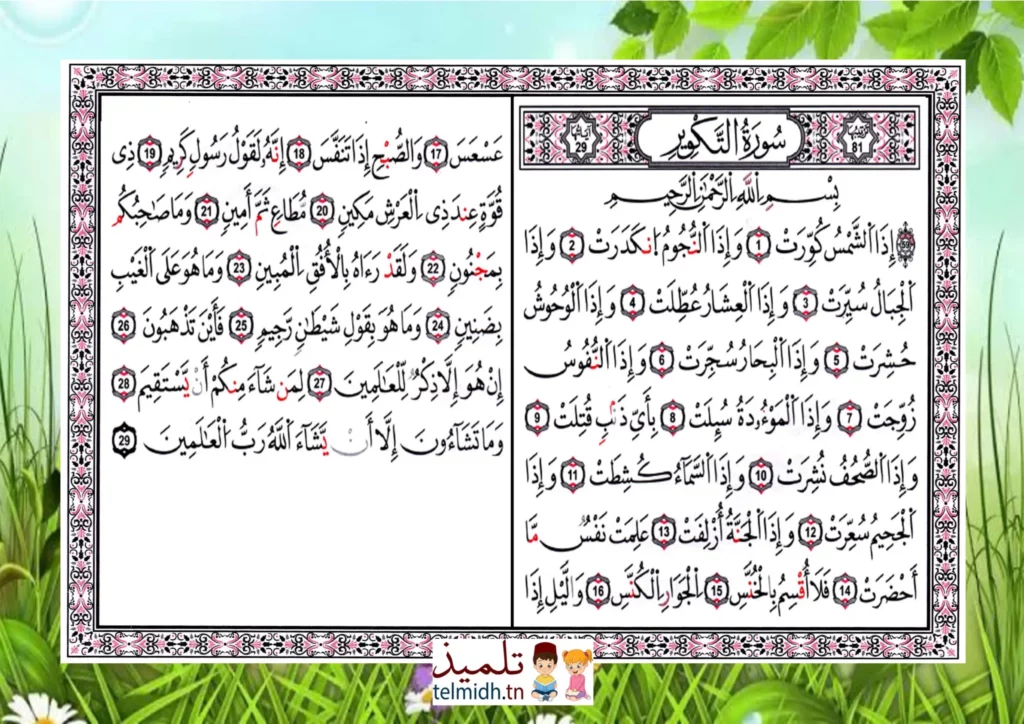 سُورَةُ التَّكْوِيرِ
ترتيبها 81
آياتها 29
بِسْمِ اِللَّهِ اِلرَّحْمَٰنِ اِلرَّحِيمِ
إِذَا اَلشَّمْسُ كُوِّرَتْ 1 وَإِذَا اَلنُّجُومُ اُنكَدَرَتْ 2 وَإِذَا
اَلْجِبَالُ سُيِّرَتْ 3 وَإِذَا اَلْعِشَارُ عُطِّلَتْ 4 وَإِذَا اَلْوُحُوشُ
حُشِرَتْ 5 وَإِذَا اَلْبِحَارُ سُجِّرَتْ 6 وَإِذَا اَلنُّفُوسُ
زُوِّجَتْ 7 وَإِذَا اَلْمَوْءُدَةُ سُئِلَتْ 8 بِأَيِّ ذَنۢبٍ قُتِلَتْ 9
وَإِذَا اَلصُّحُفُ نُشِرَتْ 10 وَإِذَا اَلسَّمَآءُ كُشِطَتْ 11 وَإِذَا
اَلْجَحِيمُ سُعِّرَتْ 12 وَإِذَا اَلْجَنَّةُ أُزْلِفَتْ 13 عَلِمَتْ نَفْسٌ مَّا
أَحْضَرَتْ 14 فَلَا أُقْسِمُ بِالْخُنَّسِ 15 اِلْجَوَارِ اِلْكُنَّسِ 16 وَالَّيْلِ إِذَا
عَسْعَسَ 17 وَالصُّبْحِ إِذَا تَنَفَّسَ 18 إِنَّهُۥ لَقَوْلُ رَسُولٍ كَرِيمٍ 19 ذِى
قُوَّةٍ عِندَ ذِى اِلْعَرْشِ مَكِينٍ 20 مُّطَاعٍ ثَمَّ أَمِينٍ 21 وَمَا صَاحِبُكُم
بِمَجْنُونٍ 22 وَلَقَدْ رَءَاهُ بِالْأُفُقِ اِلْمُبِينِ 23 وَمَا هُوَ عَلَى اَلْغَيْبِ
بِضَنِينٍ 24 وَمَا هُوَ بِقَوْلِ شَيْطَٰنٍ رَّجِيمٍ 25 فَأَيْنَ تَذْهَبُونَ 26
إِنْ هُوَ إِلَّا ذِكْرٌ لِّلْعَالَمِينَ 27 لِمَن شَآءَ مِنكُمْ أَنْ يَّسْتَقِيمَ 28
وَمَا تَشَآءُونَ إِلَّا أَنْ يَّشَآءَ اَللَّهُ رَبُّ اَلْعَالَمِينَ 29
تلميذ
telmidh.tn